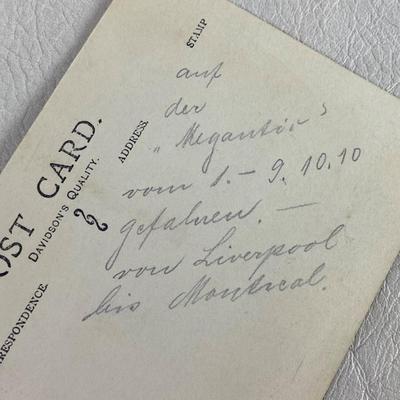 STAMP
auf
der
„Megantic“
vom 1. – 9. 10. 10
gefahren. —
von Liverpool
bis Montreal.
ADDRESS.
OST CARD.
DAVIDSON'S QUALITY.
RRESPONDENCE.